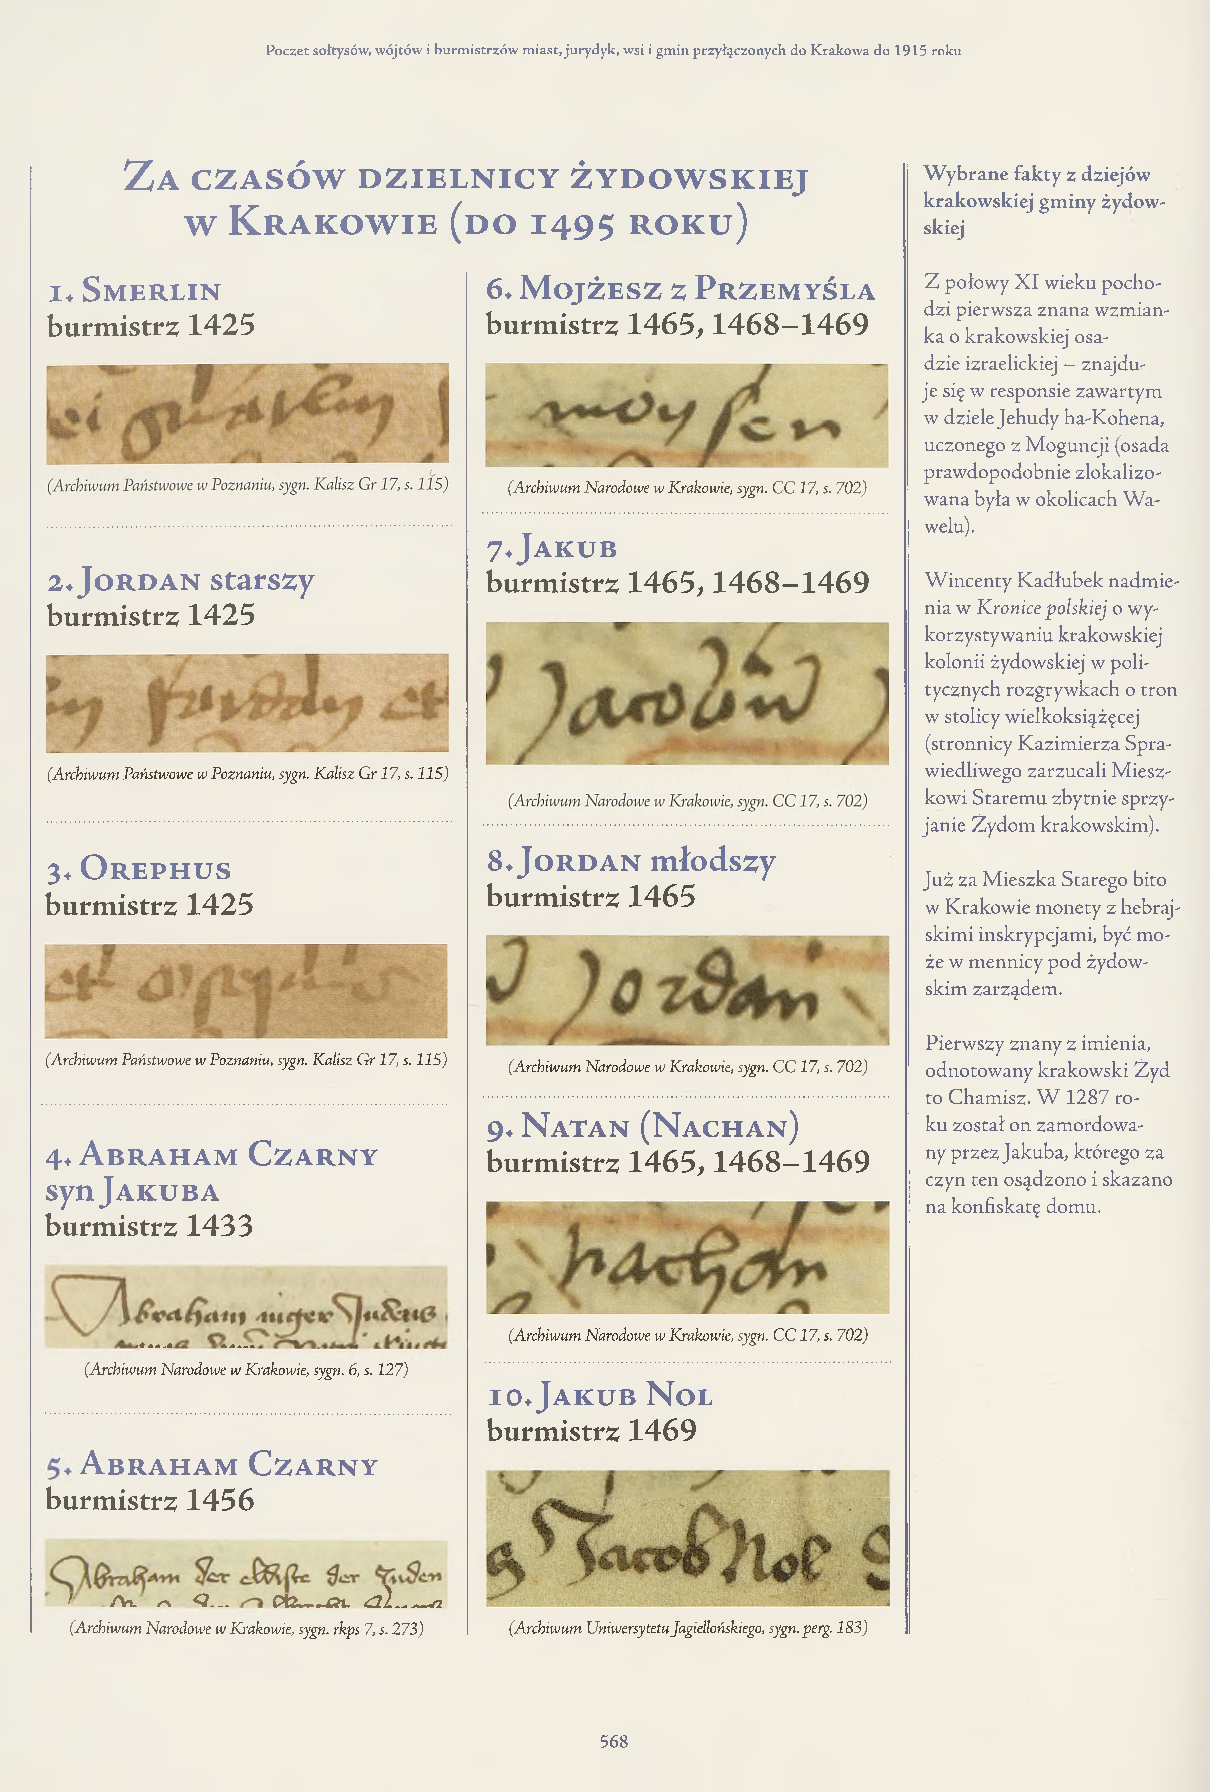 Poczet sołtysów, wójtów i burmistrzów miast, jurydyk, wsi i gmin przyłączonych do Krakowa do 1915 roku
Za czasów dzielnicy żydowskiej
w Krakowie (do 1495 roku)
1. Smerlin
burmistrz 1425
(Archiwum Państwowe w Poznaniu, sygn. Kalisz Gr 17, s. 115)
2. Jordan starszy
burmistrz 1425
(Archiwum Państwowe w Poznaniu, sygn. Kalisz Gr 17, s. 115)
3. Orephus
burmistrz 1425
(Archiwum Państwowe w Poznaniu, sygn. Kalisz Gr 17, s. 115)
4. Abraham Czarny
syn Jakuba
burmistrz 1433
Abraham niger Judeus
(Archiwum Narodowe w Krakowie, sygn. 6, s. 127)
5. Abraham Czarny
burmistrz 1456
Abraham der eldiste der Juden
(Archiwum Narodowe w Krakowie, sygn. rkps 7, s. 273)
6. Mojżesz z Przemyśla
burmistrz 1465, 1468–1469
moysen
(Archiwum Narodowe w Krakowie, sygn. CC 17, s. 702)
7. Jakub
burmistrz 1465, 1468–1469
(Archiwum Narodowe w Krakowie, sygn. CC 17, s. 702)
8. Jordan młodszy
burmistrz 1465
Jordan
(Archiwum Narodowe w Krakowie, sygn. CC 17, s. 702)
9. Natan (Nachan)
burmistrz 1465, 1468–1469
nachan
(Archiwum Narodowe w Krakowie, sygn. CC 17, s. 702)
10. Jakub Nol
burmistrz 1469
Jacob Nol
(Archiwum Uniwersytetu Jagiellońskiego, sygn. perg. 183)
Wybrane fakty z dziejów
krakowskiej gminy żydow-
skiej
Z połowy XI wieku pocho-
dzi pierwsza znana wzmian-
ka o krakowskiej osa-
dzie izraelickiej – znajdu-
je się w responsie zawartym
w dziele Jehudy ha-Kohena,
uczonego z Moguncji (osada
prawdopodobnie zlokalizo-
wana była w okolicach Wa-
welu).
Wincenty Kadłubek nadmie-
nia w Kronice polskiej o wy-
korzystywaniu krakowskiej
kolonii żydowskiej w poli-
tycznych rozgrywkach o tron
w stolicy wielkoksiążęcej
(stronnicy Kazimierza Spra-
wiedliwego zarzucali Miesz-
kowi Staremu zbytnie sprzy-
janie Żydom krakowskim).
Już za Mieszka Starego bito
w Krakowie monety z hebraj-
skimi inskrypcjami, być mo-
że w mennicy pod żydow-
skim zarządem.
Pierwszy znany z imienia,
odnotowany krakowski Żyd
to Chamisz. W 1287 ro-
ku został on zamordowa-
ny przez Jakuba, którego za
czyn ten osądzono i skazano
na konfiskatę domu.
568